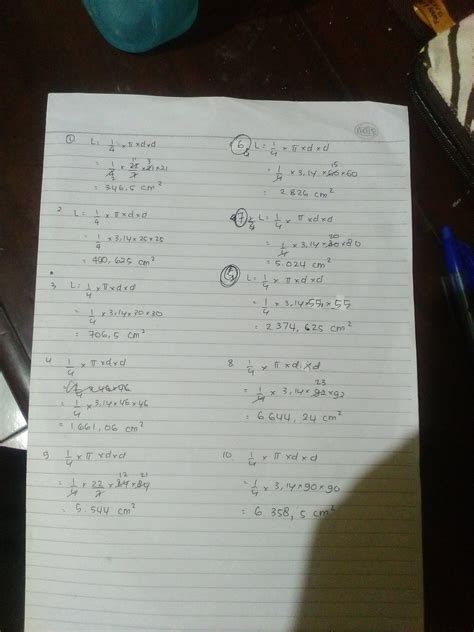 1 L = 1/4 × π × d × d
= 1/4 × 22/7 × 21 × 21
= 346,5 cm²
2. L = 1/4 × π × d × d
= 1/4 × 3,14 × 25 × 25
= 490,625 cm²
3. L = 1/4 × π × d × d
= 1/4 × 3,14 × 30 × 30
= 706,5 cm²
4. 1/4 × π × d × d
× 46 × 46
= 1/4 × 3,14 × 46 × 46
= 1.661,06 cm²
9. 1/4 × π × d × d
= 1/4 × 22/7 × 84 × 84 12 21
= 5.544 cm²
6. L = 1/4 × π × d × d
= 1/4 × 3,14 × 60 × 60 15
= 2.826 cm²
7. L = 1/4 × π × d × d
= 1/4 × 3,14 × 80 × 80 20
= 5.024 cm²
5 L = 1/4 × π × d × d
= 1/4 × 3,14 × 55 × 55
= 2374,625 cm²
8 1/4 × π × d × d
= 1/4 × 3,14 × 92 × 92 23
= 6.644,24 cm²
10. 1/4 × π × d × d
= 1/4 × 3,14 × 90 × 90
= 6.358,5 cm²